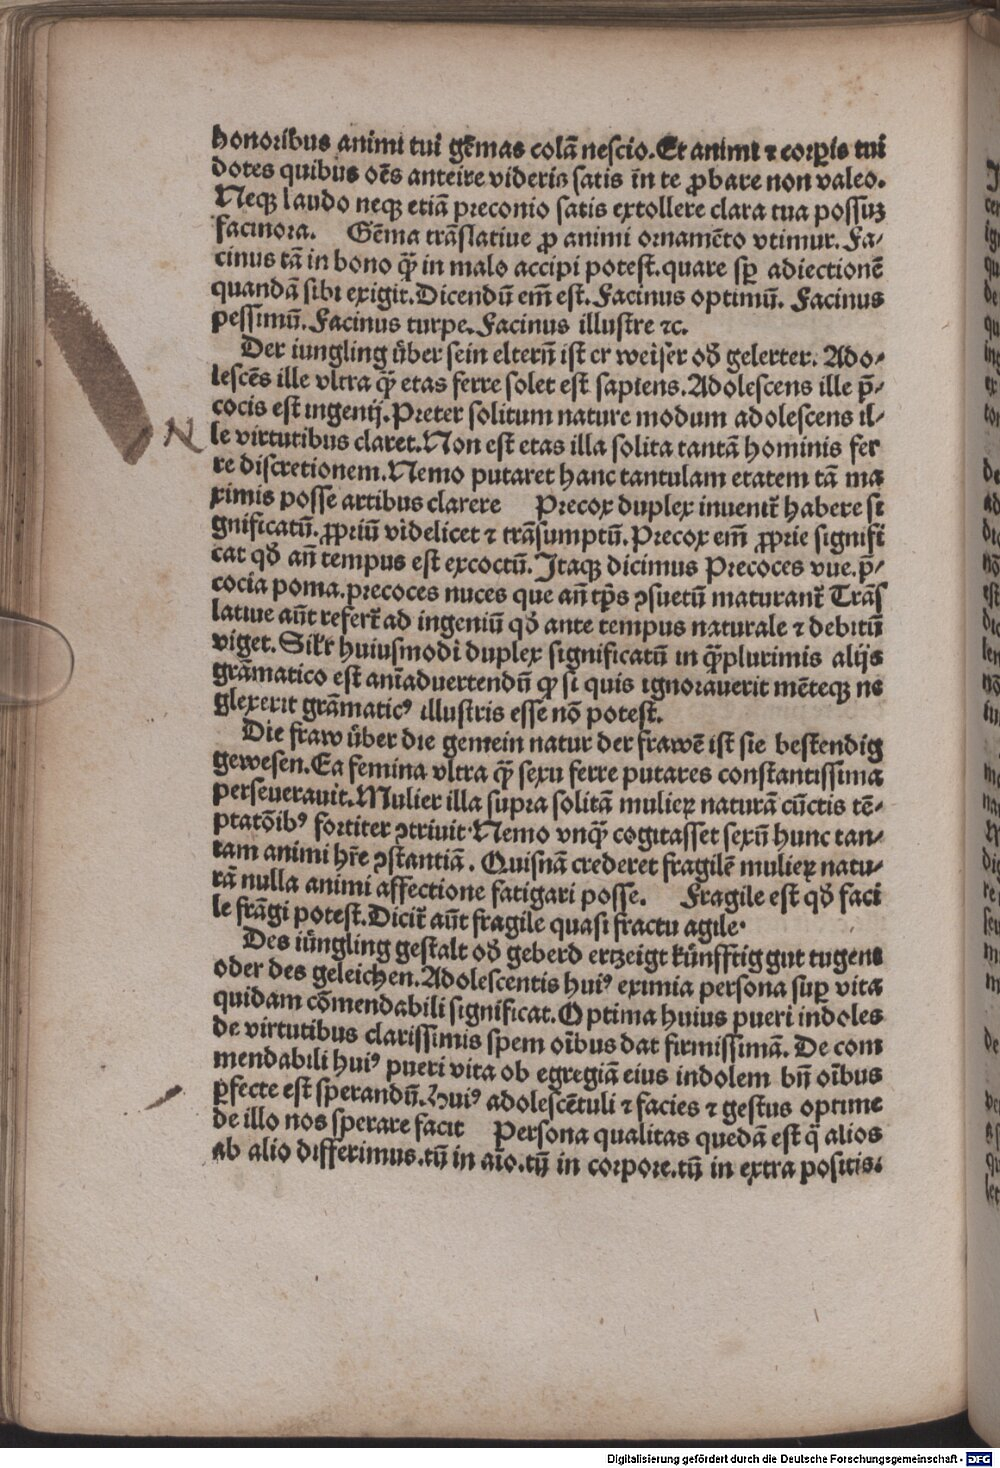 honoribus animi tui gẽmas colã nescio. Et animi ⁊ corꝑis tui
dotes quibus oẽs anteire videris satis in te ꝓbare non valeo.
Neqꝫ laudo neqꝫ etiã preconio satis extollere clara tua possuꝫ
facinora. Gẽma trãslatiue ꝓ animi ornamẽto vtimur. Fa⸗
cinus tã in bono qꝫ̃ in malo accipi potest. quare sꝑ adiectionẽ
quandã sibi exigit. Dicendũ em̃ est. Facinus optimũ. Facinus
pessimũ. Facinus turpe. Facinus illustre ⁊c.
Der iungling über sein elterñ ist er weiser oď gelerter. Ado⸗
lescẽs ille vltra qꝫ̃ etas ferre solet est sapiens. Adolescens ille p̃⸗
cocis est ingenij. Preter solitum nature modum adolescens il⸗
N le virtutibus claret. Non est etas illa solita tantã hominis fer
re discretionem. Nemo putaret hanc tantulam etatem tã ma
ximis posse artibus clarere Precox duplex inuenit᷑ habere si
gnificatũ. ꝓpriũ videlicet ⁊ trãsumptũ. Precox em̃ ꝓprie signifi
cat qď añ tempus est excoctũ. Itaqꝫ dicimus Precoces vue. p̃⸗
cocia poma. precoces nuces que añ tp̃s ꝯsuetũ maturant᷑ Trãs
latiue aũt refert᷑ ad ingeniũ qď ante tempus naturale ⁊ debitũ
viget. Sil᷑r huiusmodi duplex significatũ in qꝫ̃plurimis alijs
grãmatico est aniaduertendũ ꝙ si quis ignorauerit mẽteqꝫ ne
glexerit grãmaticꝰ illustris esse nõ potest.
Die fraw über die gemein natur der frawẽ ist sie bestendig
gewesen. Ea femina vltra qꝫ̃ sexu ferre putares constantissima
perseuerauit. Mulier illa supra solitã mulieꝝ naturã cũctis tẽ⸗
ptatõibꝰ fortiter ꝯtriuit. Nemo vnqꝫ̃ cogitasset sexũ hunc tan⸗
tam animi hr̃e ꝯstantiã. Quisnã crederet fragilẽ mulieꝝ natu⸗
rã nulla animi affectione fatigari posse. Fragile est qď faci
le frãgi potest. Dicit᷑ aũt fragile quasi fractu agile.
Des iüngling gestalt oď geberd ertzeigt künfftig gut tugent
oder des geleichen. Adolescentis huiꝰ eximia persona suꝑ vita
quidam cõmendabili significat. Optima huius pueri indoles
de virtutibus clarissimis spem oĩbus dat firmissimã. De com
mendabili huiꝰ pueri vita ob egregiã eius indolem bñ oĩbus
ꝑfecte est sperandũ. Huiꝰ adolescẽtuli ⁊ facies ⁊ gestus optime
de illo nos sperare facit Persona qualitas quedã est q̃ alios
ab alio differimus. tũ in aĩo. tũ in corpore. tũ in extra positis.
Digitalisierung gefördert durch die Deutsche Forschungsgemeinschaft - DFG